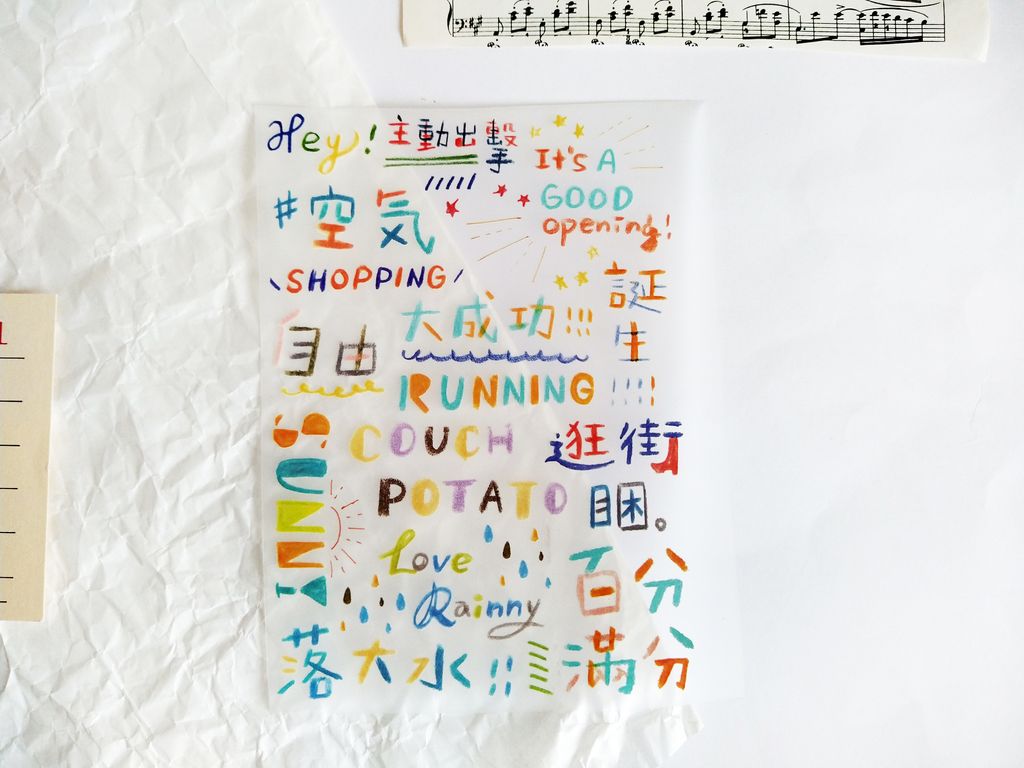 Hey! 主動出擊
It's A
GOOD
opening!
#空気
SHOPPING
誕生
大成功!!!
自由
RUNNING !!!!
SUNNY
COUCH
逛街
POTATO
睏。
Love
Rainny
百分
落大水!!
滿分